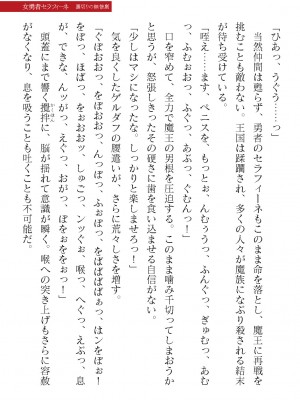 女勇者セラフィーネ 裏切りの触淫嬲
「ひあっ、うぐう……っ」
　当然仲間は甦らず、勇者のセラフィーネもこのまま命を落とし、魔王に再戦を
挑むことも敵わない。王国は蹂躙され、多くの人々が魔族になぶり殺される結末
が待ち受けている。
「咥え……ます、ペニスを、もっとぉ、んむぅうっ、ふんぐっ、ぎゅむっ、あむ
っ、ふむおぉっ、ふぐっ、あぶっ、ぐむんっ！」
　口を窄めて、全力で魔王の男根を圧迫する。このまま噛み千切ってしまおうか
と思うが、怒張しきったその硬さに歯を食い込ませる自信がない。
「少しはマシになったな。しっかりと楽しませろっ！」
　気を良くしたゲルダフの腰遣いが、さらに荒々しさを増す。
「ぐぽおおっ、をぉおおっ、んっぽっ、ふぉぽっ、をばばばばぁっ、はンをぉっ！
をぽっ、ほぼっ、をぉおおッ、しゅごっ、ンッぐぉ、喉っ、へぐっ、えぶっ、息
が、できな、んッがっ、えぐっ、おがっ、ぽをぉををぉっ！」
　頭蓋にまで響く攪拌に、脳が揺れて意識が瞬く。喉への突き上げもさらに容赦
がなくなり、息を吸うことも吐くことも不可能だ。